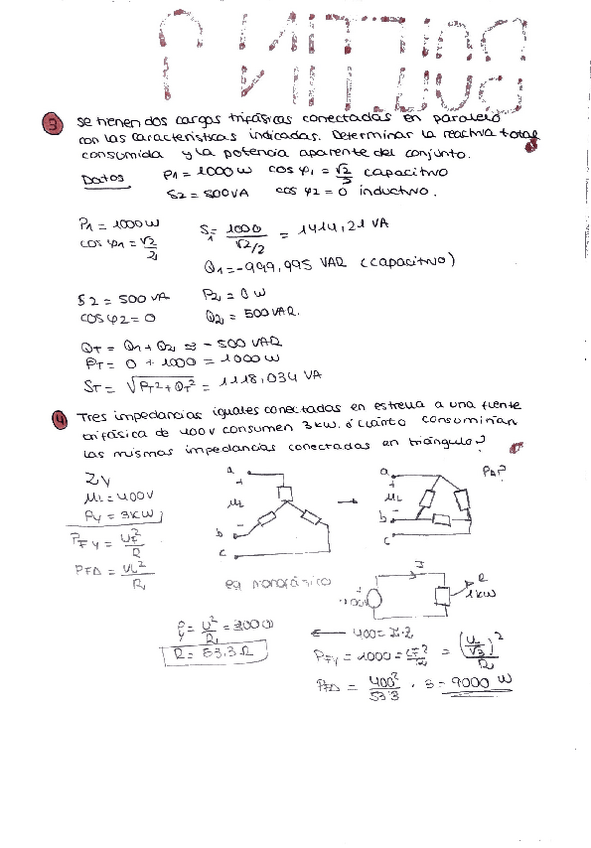 BOLETIN 1
3 Se tienen dos cargas trifásicas conectadas en paralelo
con las características indicadas. Determinar la reactiva total
consumida y la potencia aparente del conjunto.
Datos P1 = 1000 W cos φ1 = √2/2 capacitivo
S2 = 500 VA cos φ2 = 0 inductivo.
P1 = 1000 W S1 = 1000 / (√2/2) = 1414,21 VA
cos φ1 = √2/2
Q1 = -999,995 VAR (capacitivo)
S2 = 500 VA P2 = 0 W
cos φ2 = 0 Q2 = 500 VAR.
QT = Q1 + Q2 ≈ -500 VAR
PT = 0 + 1000 = 1000 W
ST = √PT² + QT² = 1118,034 VA
4 Tres impedancias iguales conectadas en estrella a una fuente
trifásica de 400 V consumen 3 kW. ¿Cuánto consumirían
las mismas impedancias conectadas en triángulo?
ZY a a PΔ?
UL = 400 V + UL - + UL -
PY = 3 kW b b
c c
PFY = UF²/R
PFΔ = UL²/R
eq monofásico I R
1 kW
PY = U²/R = 3000
R = 53.3 Ω
400 = I·Z
PFY = 1000 = UF²/R = (UL/√3)²/R
PFΔ = 400²/53.3 · 3 = 9000 W